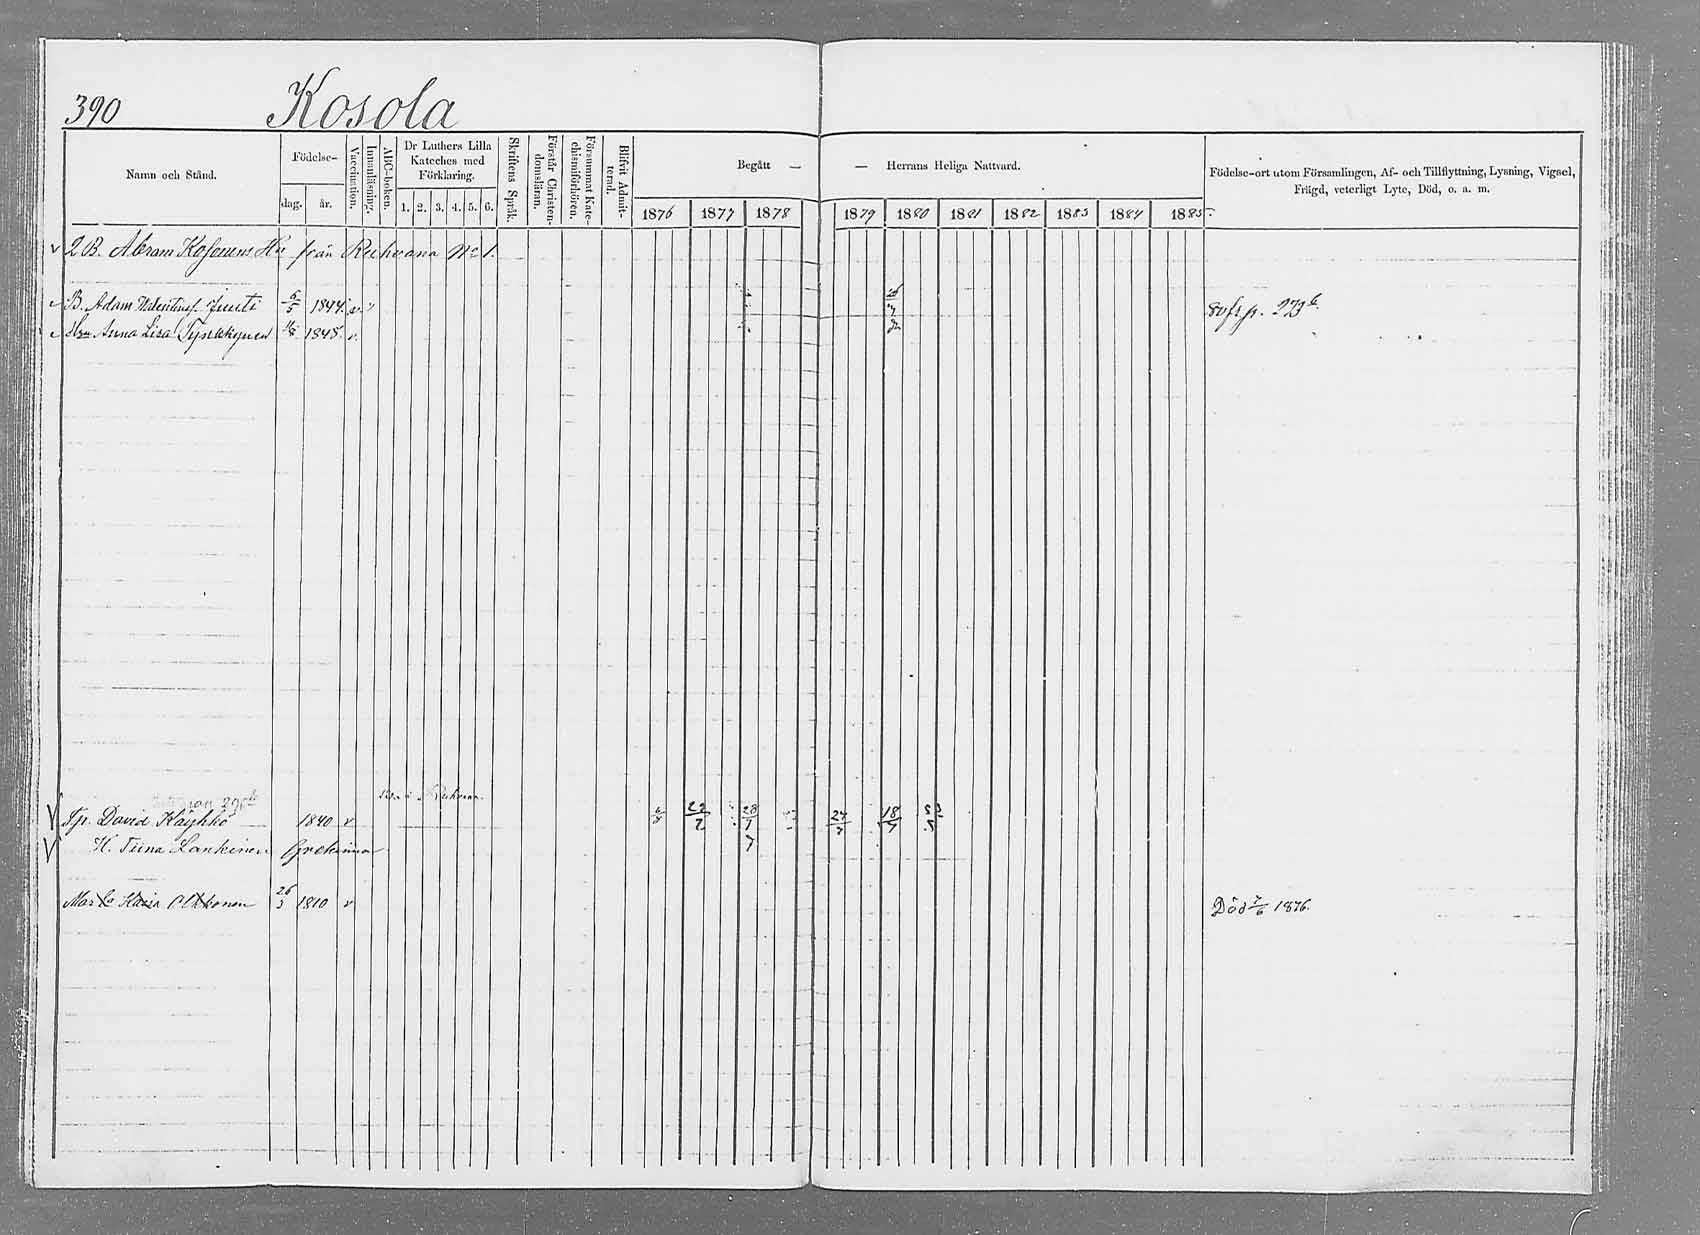 390 Kosola
Namn och Stånd.
Födelse-
dag. år.
Vaccination.
Innanläsning.
ABC-boken.
Dr Luthers Lilla
Kateches med
Förklaring.
1. 2. 3. 4. 5. 6.
Skriftens Språk.
Förstår Christen-
domsläran.
Försummat Kate-
chismiförhören.
Blifvit Admit-
terad.
Begått — — Herrans Heliga Nattvard.
1876 1877 1878 1879 1880 1881 1882 1883 1884 1885
Födelse-ort utom Församlingen, Af- och Tillflyttning, Lysning, Vigsel,
Frägd, veterligt Lyte, Död, o. a. m.
v 2 B. Abram Kosonens från Ruhvana No 1.
B. Adam Juuti 1844 80 fr p. 273
Anna Lisa Tynkkynen 1848 v
David Käyhkö 1840 v 22/7 28/7 24/7 18/7
H. Tiina Lankinen
Maria Olkkonen 26/3 1810 v Död 7/6 1876.